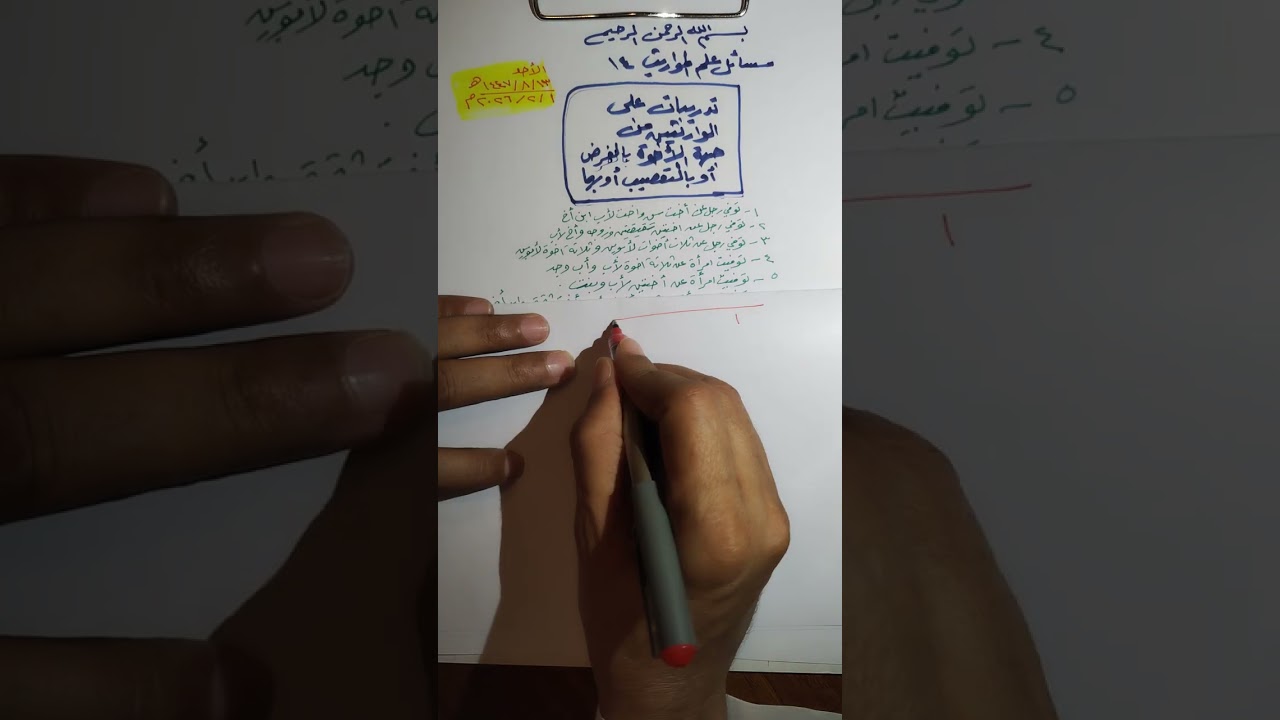 بسم الله الرحمن الرحيم
مسائل علم المواريث ١٤
الأحد
١٤٤٧/٨/١٣هـ
٢٠٢٦/٢/١م
تدريبات على
الوارثين من
جهة الأخوة بالفرض
أو بالتعصيب أو بهما
١- توفي رجل عن أخت ش وأخت لأب ابن أخ
٢- توفي رجل عن اختين شقيقتين وزوجه وأخ لأب
٣- توفي رجل عن ثلاث أخوات لأبوين وثلاثة اخوة لأبوين
٤- توفيت امرأة عن ثلاثة اخوة لأب وأب وجد
٥- توفيت امرأة عن أختين لأب وبنت
١